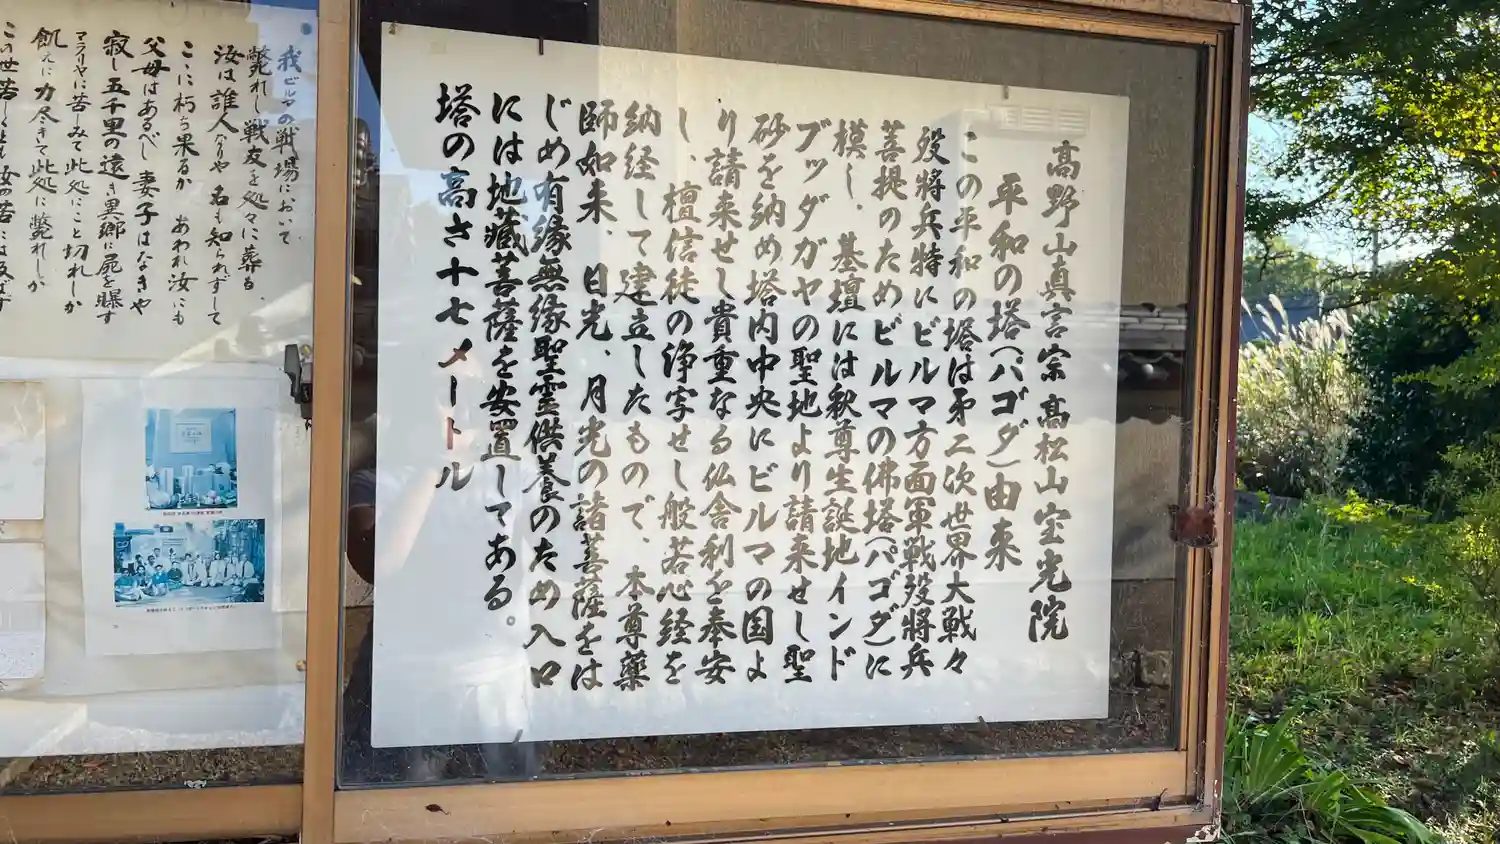 高野山真言宗高松山宝光院
平和の塔(パゴダ)由来
この平和の塔は㐧二次世界大戦々
歿将兵特にビルマ方面軍戦歿將兵
菩提のためビルマの佛塔(パゴダ)に
模し、基壇には釈尊生誕地インド
ブッダガヤの聖地より請来せし聖
砂を納め塔内中央にビルマの国よ
り請来せし貴重なる仏舎利を奉安
し、檀信徒の浄写せし般若心経を
納経して建立したもので、本尊薬
師如来、日光、月光の諸菩薩をは
じめ有縁無縁聖霊供養のため入口
には地蔵菩薩を安置してある。
塔の高さ十七メートル
我ビルマの戦場において
斃れし戦友を処々に葬る、
汝は誰人なりや 名も知られずして
ここに朽ち果るか あわれ汝にも
父母はあるべし 妻子はなきや
寂し五千里の遠き異郷に屍を曝す
マラリヤに苦しみて此処にこと切れしか
飢えに力尽きて此処に斃れしか